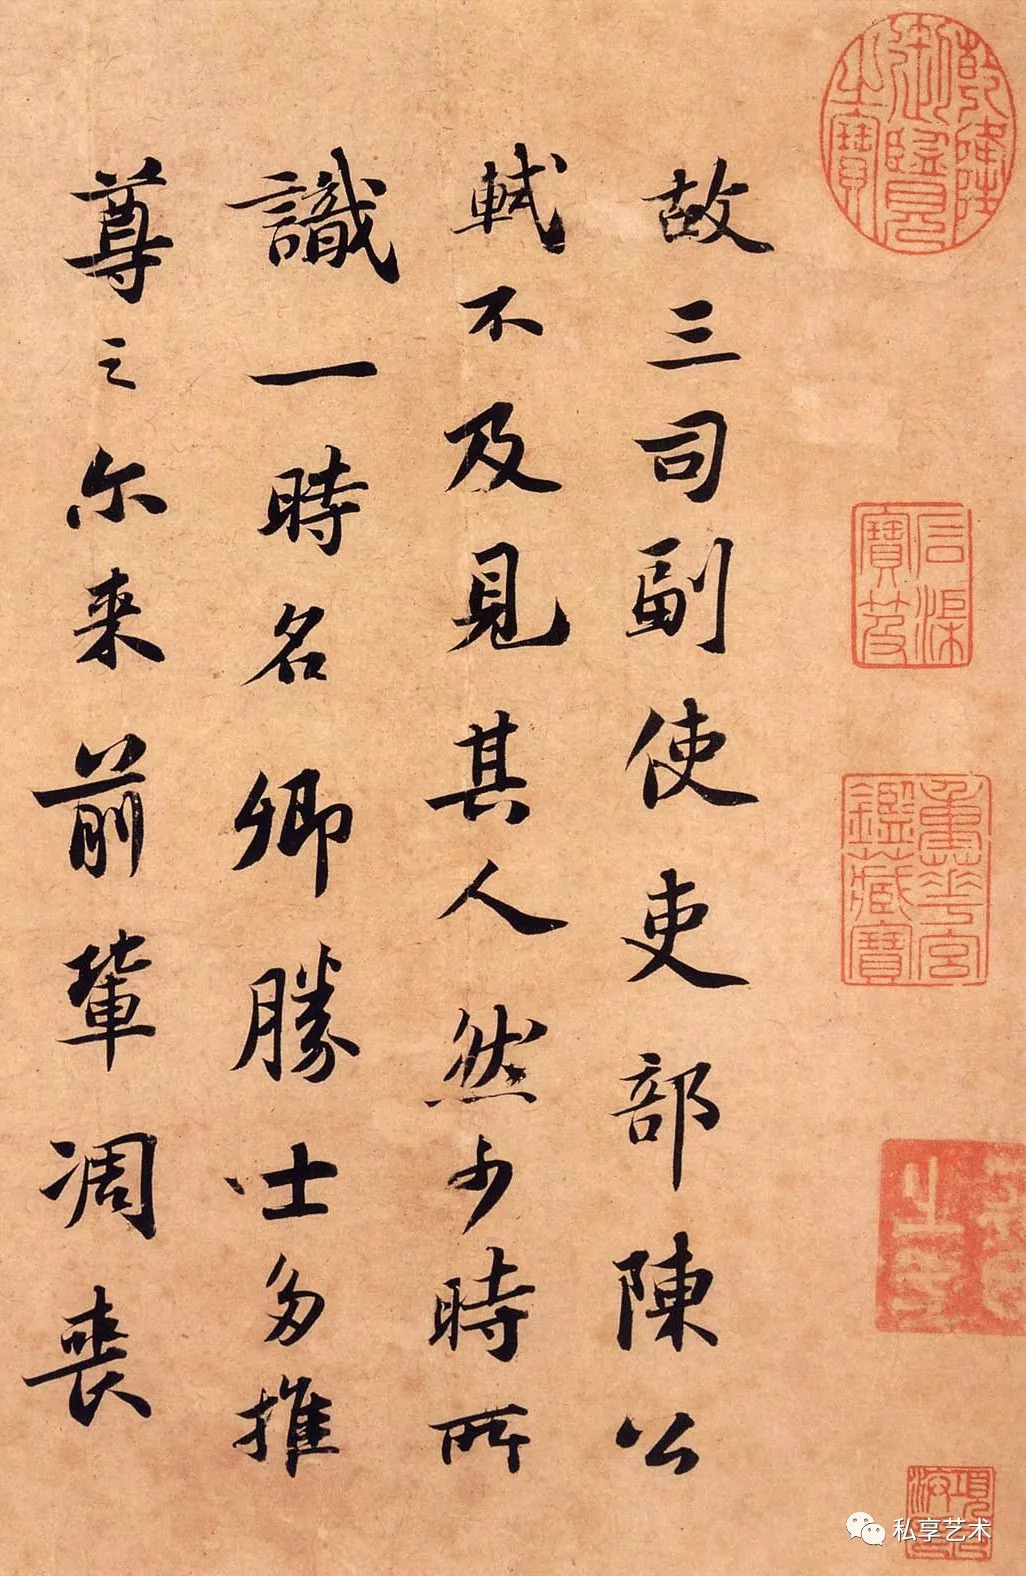 故三司副使吏部陳公
軾不及見其人然少時所
識一時名卿勝士多推
尊之尔来前輩凋喪
乾隆御覽之寶
石渠寶笈
重華宮鑑藏寶
私享艺术